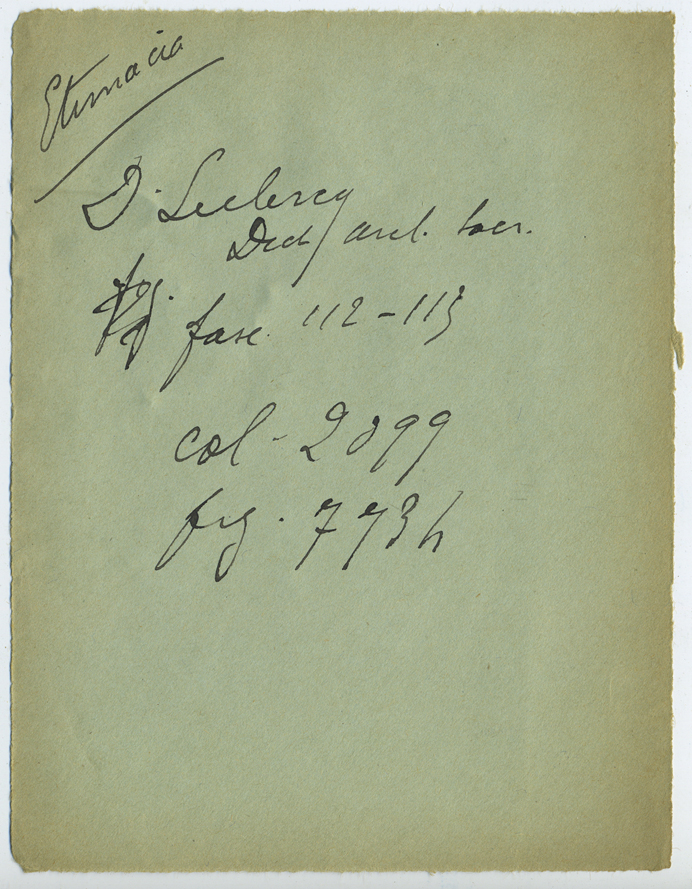 Etimacia
D. Leclercq
Dict/ arch.
fasc. 112-113
col - 2099
fig. 7734